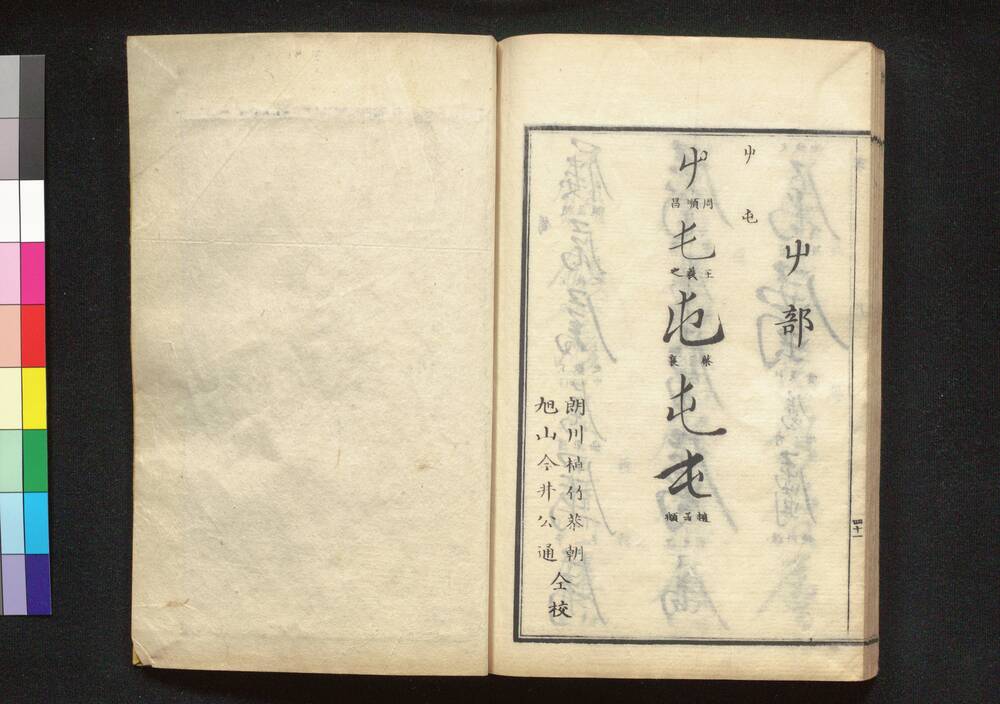 屮部
屮 屯
屮
周順昌
屯
王羲之
屯
蔡襄
屯
屯
趙孟頫
朗川植竹恭朝
旭山今井公通
仝校
四十一